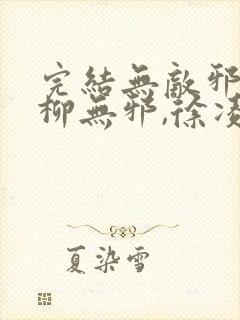 完結無敵邪
柳無邪,徐凌
夏染雪